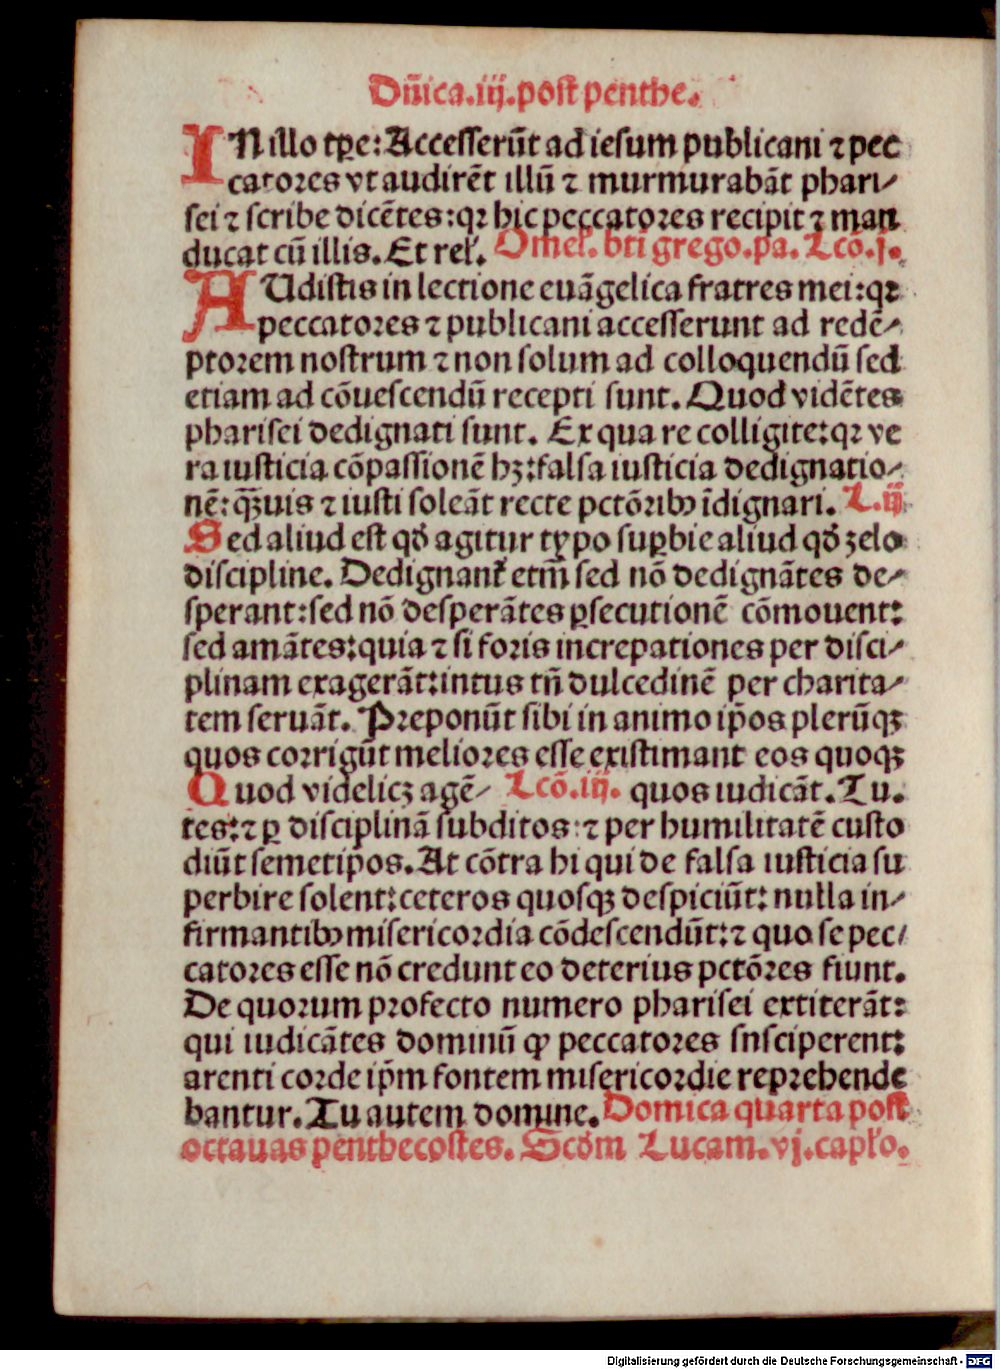 Dñica.iij.post penthe.
IN illo tꝑe: Accesserūt ad iesum publicani ⁊ pec
catores vt audirēt illū ⁊ murmurabāt phari⸗
sei ⁊ scribe dicētes: qꝛ hic peccatores recipit ⁊ man
ducat cū illis. Et rel̛. Omel̛. bti grego. pa. Lcō. j.
AUdistis in lectione euāgelica fratres mei: qꝛ
peccatores ⁊ publicani accesserunt ad redē⸗
ptorem nostrum ⁊ non solum ad colloquendū sed
etiam ad cōuescendū recepti sunt. Quod vidētes
pharisei dedignati sunt. Ex qua re colligite: qꝛ ve
ra iusticia cōpassionē hꝫ: falsa iusticia dedignatio⸗
nē: qꝫuis ⁊ iusti soleāt recte pctōribꝰ īdignari. L. ij
Sed aliud est qđ agitur typo suꝑbie aliud qđ zelo
discipline. Dedignant̛ etm̄ sed nō dedignātes de⸗
sperant: sed nō desperātes ꝑsecutionē cōmouent:
sed amātes: quia ⁊ si foris increpationes per disci⸗
plinam exagerāt: intus tñ dulcedinē per charita⸗
tem seruāt. Preponūt sibi in animo ip̄os plerūqꝫ
quos corrigūt meliores esse existimant eos quoqꝫ
Quod videlicꝫ agē⸗ Lcō. iij. quos iudicāt. Tu.
tes: ⁊ ꝑ disciplinā subditos: ⁊ per humilitatē custo
diūt semetipos. At cōtra hi qui de falsa iusticia su
perbire solent: ceteros quosqꝫ despiciūt: nulla in⸗
firmantibꝰ misericordia cōdescendūt: ⁊ quo se pec⸗
catores esse nō credunt eo deterius pctōres fiunt.
De quorum profecto numero pharisei extiterāt:
qui iudicātes dominū ꝙ peccatores snsciperent:
arenti corde ip̄m fontem misericordie reprehende
bantur. Tu autem domine. Domica quarta post
octauas penthecostes. Scđm Lucam. vj. capl̛o.
Digitalisierung gefördert durch die Deutsche Forschungsgemeinschaft - DFG